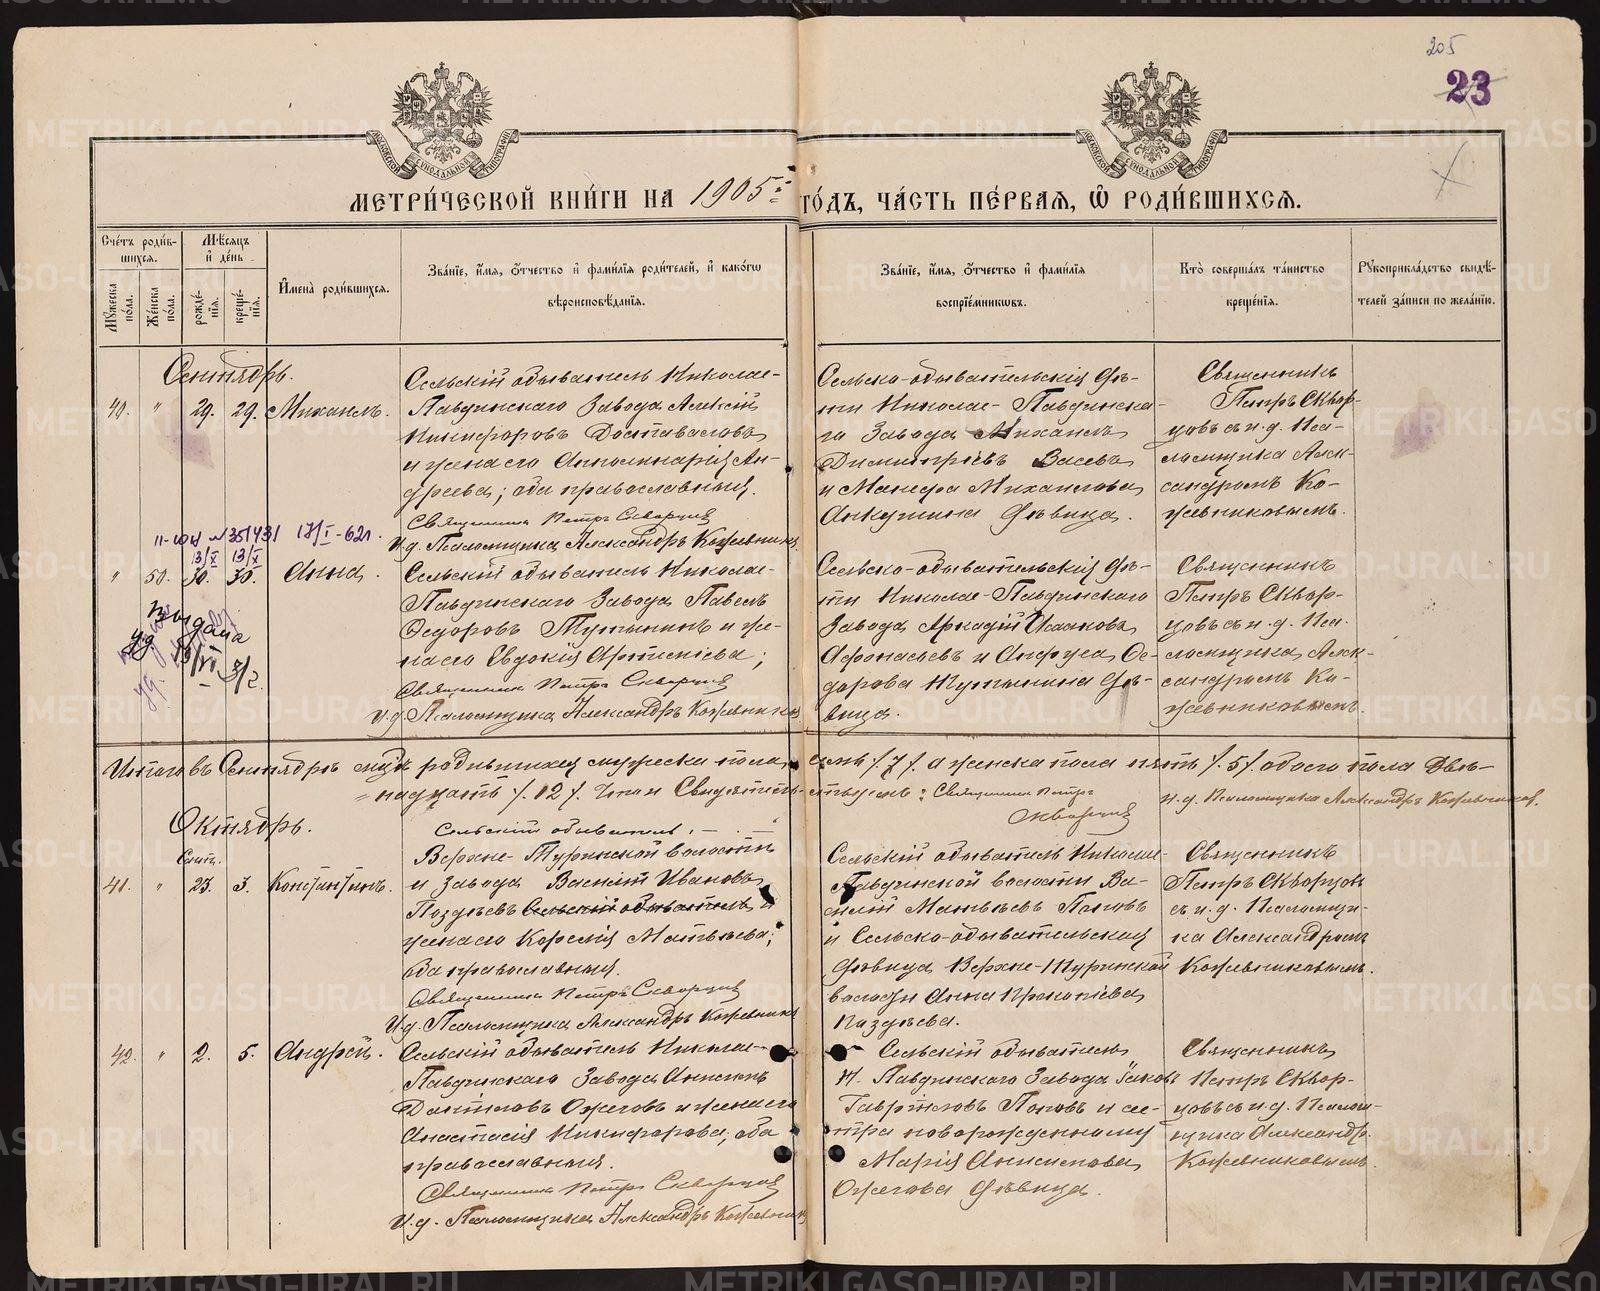 205
23
МЕТРИ́ЧЕСКОЙ КНИ́ГИ НА 1905й ГО́ДЪ, ЧА́СТЬ ПЕ́РВАЯ, Ѡ РОДИ́ВШИХСЯ.
Сче́тъ роди́в-
шихся.
Мꙋ́жеска по́ла.
Же́нска по́ла.
Мѣ́сяцъ и де́нь
рожде́нїя.
креще́нїя.
И҆мена̀ роди́вшихся.
Зва́нїе, и҆́мя, ѻ҆́тчество и҆ фами́лїя роди́телей, и҆ како́гѡ
вѣроисповѣ́данїя.
Зва́нїе, и҆́мя, ѻ҆́тчество и҆ фами́лїя
воспрїе́мниковъ.
Кто̀ соверша́лъ та́инство
креще́нїя.
Рꙋкоприкла́дство свидѣ́-
телей за́писи по жела́нїю.
Сентябрь.
40. " 29. 29. Михаилъ.
Сельскій обыватель Николае-
Павдинскаго Завода Алексій
Никифоровъ Доставаловъ
и жена его Апполинарія Ан-
дреева; оба православныя.
Священникъ Петръ Скворцовъ
И.д. Псаломщика Александръ Кожевник
Сельско-обывательскія дѣ-
ти Николае-Павдинска-
го Завода Михаилъ
Димитріевъ Васевъ
и Манефа Михаилова
Анкушина дѣвица.
Священникъ
Петръ Сквор-
цовъ съ и.д. Пса-
ломщика Алек-
сандромъ Ко-
жевниковымъ.
II-ЮИ №351431 17/I-62г.
13/X 13/X
" 50. 30. 30. Анна.
Выдана
Сельскій обыватель Николае-
Павдинскаго Завода Павелъ
Ѳедоровъ Тутынинъ и же-
на его Евдокія Артемієва;
Священникъ Петръ Скворцовъ
И.д. Псаломщика Александръ Кожевник
Сельско-обывательскія дѣ-
ти Николае-Павдинскаго
Завода Аркадій Исааковъ
Афонасьевъ и Анфуса Ѳе-
дорова Тутынина дѣ-
вица.
Священникъ
Петръ Сквор-
цовъ съ и.д. Пса-
ломщика Алек-
сандромъ Ко-
жевниковымъ.
Итого въ Сентябрѣ м-цѣ родившихся мужеска пола семь /.7/. а женска пола пять /.5/. обоего пола двѣ-
надцать /.12/. Въ чемъ Свидѣтельствуемъ: Священникъ Петръ
Скворцовъ
и.д. Псаломщика Александръ Кожевниковъ.
Октябрь.
Сент.
41. " 23. 3. Константинъ.
Сельскій обыватель
Верхне-Туринской волости
и Завода Василій Ивановъ
Поздѣевъ Сельскій обыватель и
жена его Корнилія Матвѣева;
оба православныя.
Священникъ Петръ Скворцовъ
И.д. Псаломщика Александръ Кожевник
Сельскій обыватель Николае-
Павдинской волости Ва-
силій Матвѣевъ Поповъ
и Сельско-обывательская
дѣвица Верхне-Туринской
волости Анна Прокопіева
Поздѣева.
Священникъ
Петръ Скворцовъ
съ и.д. Псаломщи-
ка Александромъ
Кожевниковымъ.
42. " 2. 5. Андрей.
Сельскій обыватель Николае-
Павдинскаго Завода Анисимъ
Даніиловъ Ожеговъ и жена его
Анастасія Никифорова, оба
православныя.
Священникъ Петръ Скворцовъ
И.д. Псаломщика Александръ Кожевник
Сельскій обыватель
Н. Павдинскаго Завода Іаковъ
Гавріиловъ Поповъ и се-
стра новорожденному
Марія Анисимова
Ожегова дѣвица.
Священникъ
Петръ Сквор-
цовъ съ и.д. Псалом-
щика Александр.
Кожевниковымъ.
METRIKI.GASO-URAL.RU